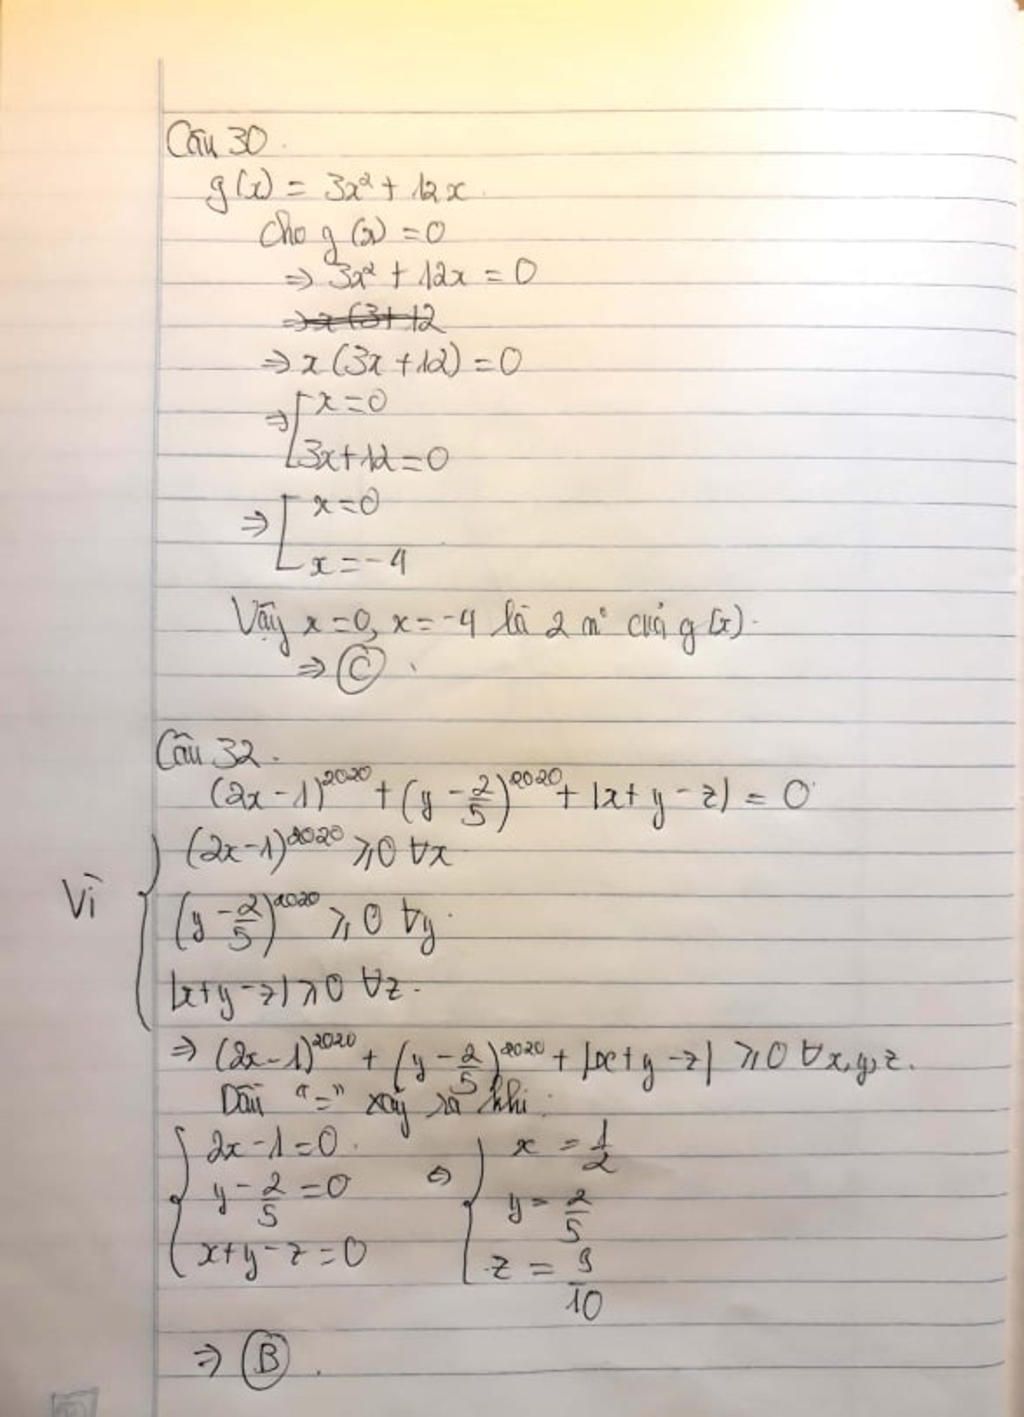 Câu 30.
g(x) = 3x² + 12x.
Cho g(x) = 0
⇒ 3x² + 12x = 0
⇒ x (3+12
⇒ x (3x + 12) = 0
⇒ [ x = 0
3x + 12 = 0
⇒ [ x = 0
x = -4
Vậy x = 0, x = -4 là 2 n° của g(x).
⇒ C.
Câu 32.
(2x - 1)²⁰²⁰ + (y - 2/5)²⁰²⁰ + |x + y - z| = 0
Vì { (2x - 1)²⁰²⁰ ⩾ 0 ∀x
(y - 2/5)²⁰²⁰ ⩾ 0 ∀y.
|x + y - z| ⩾ 0 ∀z.
⇒ (2x - 1)²⁰²⁰ + (y - 2/5)²⁰²⁰ + |x + y - z| ⩾ 0 ∀x,y,z.
Dấu "=" xảy ra khi:
{ 2x - 1 = 0. ⇔ { x = 1/2
y - 2/5 = 0 y = 2/5
x + y - z = 0 z = 9/10
⇒ B.